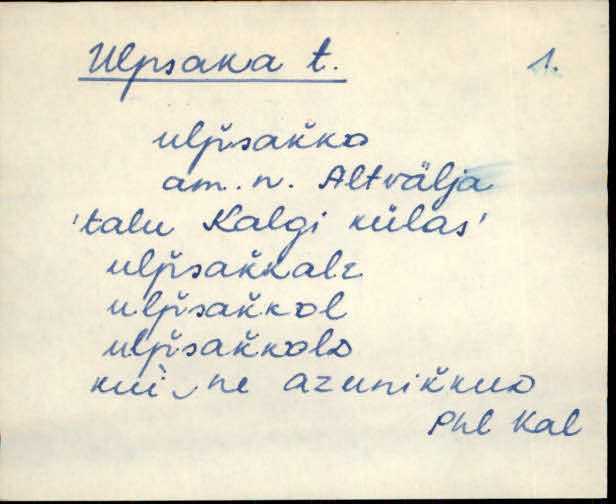 Ulpsaka t. 1.
ulp̆sak̆ko
am. n. Altvälja
'talu Kalgi külas'
ulp̆sak̆kalɛ
ulp̆sak̆kol
ulp̆sak̆kolo
azunik̆kuo
Phl Kal